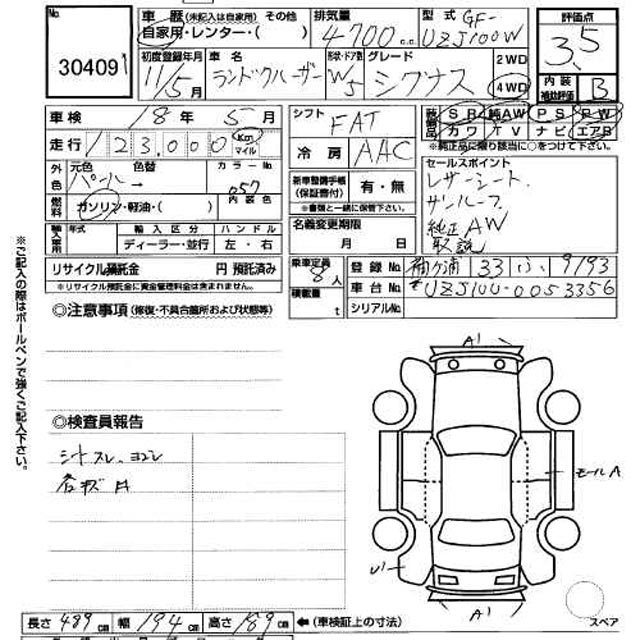 No.
30409
車 歴 (未記入は自家用) その他
自家用・レンター・( )
排気量
4700 c.c.
型式 GF-
UZJ100W
評価点
3.5
内装
補助評価 B
初度登録年月
11/5月
車 名
ランドクルーザー
形状・ドア数
W5
グレード
シグナス
2WD
4WD
車検 18年 5月
走行 123,000 Km マイル
外色 元色 色替 カラーNo.
パール → 057
燃料 ガソリン・軽油・( ) 内装色
輸入車用 年式 輸入区分 ハンドル
ディーラー・並行 左・右
リサイクル預託金 円 預託済み
※リサイクル預託金に資金管理料金は含まれません。
シフト FAT
冷房 AAC
新車整備手帳
(保証書付) 有・無
※書類と一緒に保管下さい。
名義変更期限
月 日
乗車定員
8人
積載量
t
装備品 SR 純AW PS PW
カワ TV ナビ エアB
※純正品に限り該当に○をつけて下さい。
セールスポイント
レザーシート、
サンルーフ、
純正AW
取説
登録No. 袖ヶ浦 33 ふ 9193
車台No. UZJ100-0053356
シリアルNo.
◎注意事項 (修復・不具合箇所および状態等)
◎検査員報告
シートスレ、ヨゴレ
各キズA
A1
モールA
U1
A1
スペア
長さ 489cm 幅 194cm 高さ 189cm ←(車検証上の寸法)
※ご記入の際はボールペンで強くご記入下さい。